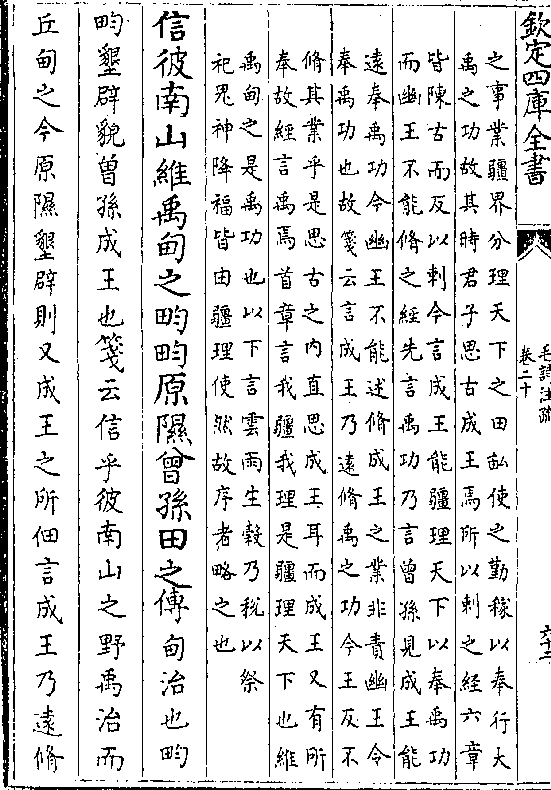 欽定四庫全書
毛詩注疏
卷二十
六十二
之事業疆界分理天下之田畝使之勤稼以奉行大
禹之功故其時君子思古成王焉所以刺之經六章
皆陳古而反以刺今言成王能疆理天下以奉禹功
而幽王不能脩之經先言禹功乃言曾孫見成王能
遠奉禹功今幽王不能述脩成王之業非責幽王令
奉禹功也故箋云言成王乃遠脩禹之功今王反不
脩其業乎是思古之内直思成王耳而成王又有所
奉故經言禹焉首章言我疆我理是疆理天下也維
禹甸之是禹功也以下言雲雨生穀乃稅以祭
祀鬼神降福皆由疆理使然故序者略之也
信彼南山維禹甸之畇畇原隰曾孫田之傳甸治也畇
畇墾辟貌曾孫成王也箋云信乎彼南山之野禹治而
丘甸之今原隰墾辟則又成王之所佃言成王乃遠脩